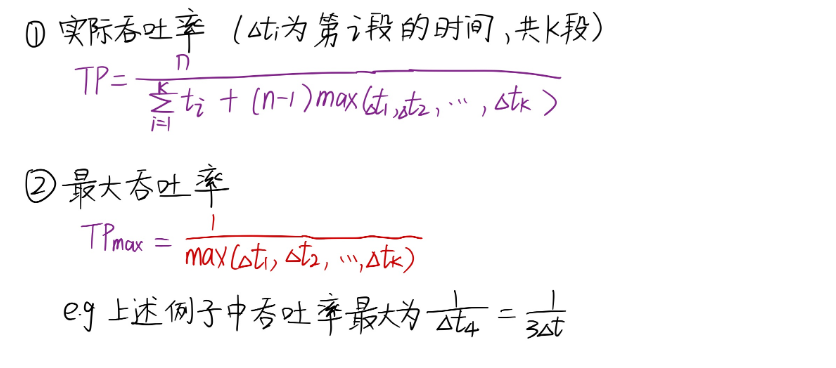 ① 实际吞吐率 (Δti为第i段的时间,共K段)
TP = n / (∑_{i=1}^{K} ti + (n-1)max(Δt1,Δt2,…,Δtk))
② 最大吞吐率
TPmax = 1 / max(Δt1,Δt2,…,Δtk)
e.g 上述例子中吞吐率最大为 1/Δt4 = 1/3Δt